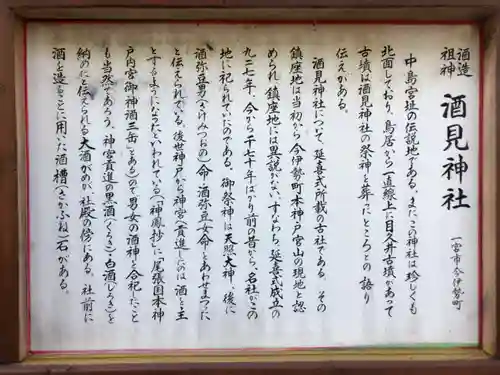 酒造
祖神
酒見神社
一宮市今伊勢町
中島宮址の伝説地である。また、この神社は珍しくも
北面しており、鳥居から一直線上に目久井古墳があって
古墳は酒見神社の祭神を葬ったところとの語り
伝えがある。
酒見神社について、延喜式所載の古社である。その
鎮座地は当初から今伊勢町本神戸宮山の現地と認
められ、鎮座地には異説がない。すなわち、延喜式成立の
九二七年、今から千七十年ばかり前の昔から、名社がこの
地に祀られていたのである。御祭神は天照大神、後に
酒弥豆男(さけみつおの)命、酒弥豆女命とあわせまつった
と伝えられている。後世神戸から神宮へ貢進したのは酒を主
とするようになったといわれている(「神鳳抄」に「尾張国本神
戸内宮御神酒三缶」とある)ので男女の酒神を合祀したこと
も当然であろう。神宮貢進の黒酒(くろき)・白酒(しろき)を
納めたと伝えられる大酒がめが、社殿の傍にある。社前に
酒を造ることに用いた酒槽(さかふね)石がある。